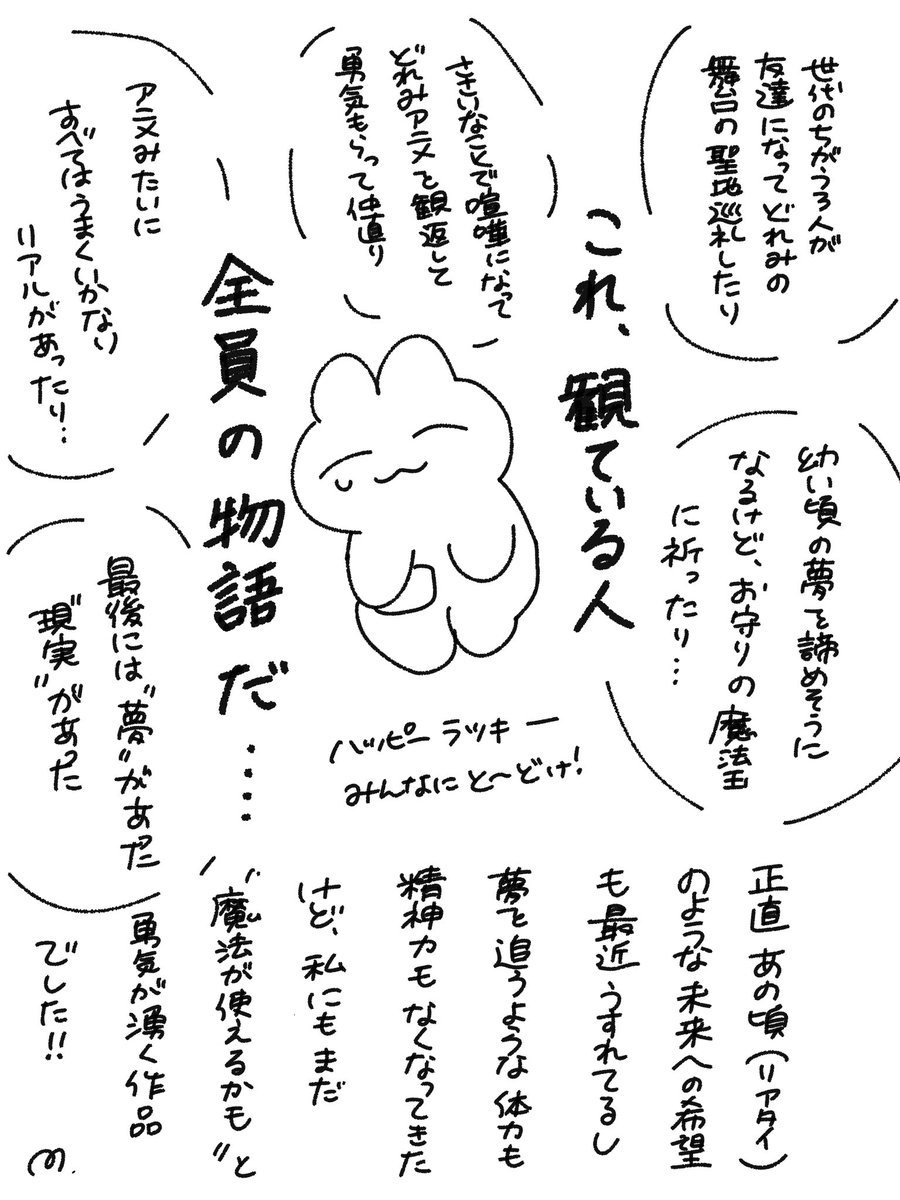 世代のちがう3人が
友達になってどれみの
舞台の聖地巡礼したり
ささいなことで喧嘩になって
どれみアニメを観返して
勇気もらって仲直り
アニメみたいに
すべてはうまくいかない
リアルがあったり…
これ、観ている人
全員の物語だ……
幼い頃の夢を諦めそうに
なるけど、お守りの魔法玉
に祈ったり…
最後には"夢"があった
"現実"があった
ハッピーラッキー
みんなにと〜どけ!
正直あの頃(リアタイ)
のような未来への希望
も最近うすれてるし
夢を追うような体力も
精神力もなくなってきた
けど、私にもまだ
"魔法が使えるかも"と
勇気が湧く作品
でした!!